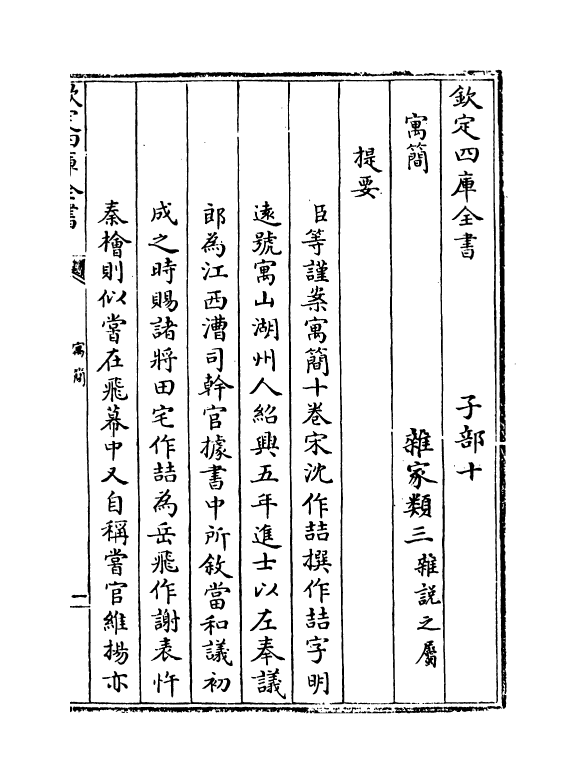 欽定四庫全書　子部十
寓簡　雜家類三雜說之屬
提要
臣等謹案寓簡十卷宋沈作喆撰作喆字明
遠號寓山湖州人紹興五年進士以左奉議
郎為江西漕司幹官據書中所敘當和議初
成之時賜諸將田宅作喆為岳飛作謝表忤
秦檜則似嘗在飛幕中又自稱嘗官維揚亦
欽定四庫全書
寓簡
一